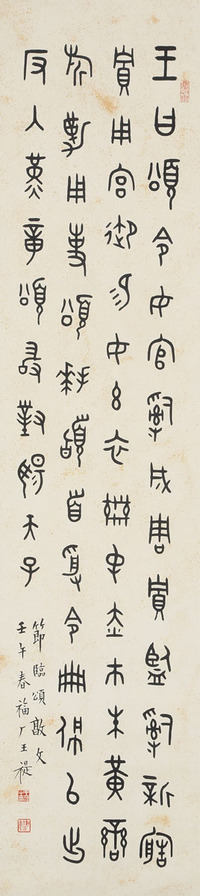 王曰頌令女官𤔲成周貯監𤔲新造
貯用宮御易女玄衣黹屯赤巿朱黃䜌
用事頌拜稽首受令冊佩以出
反入堇章頌敢對揚天子
節臨頌敦文
壬午春福厂王禔